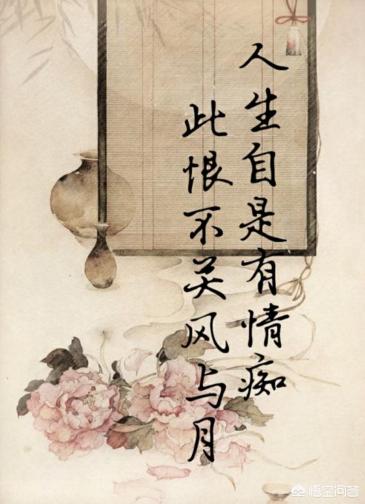 人生自是有情痴
此恨不关风与月
悟空问答